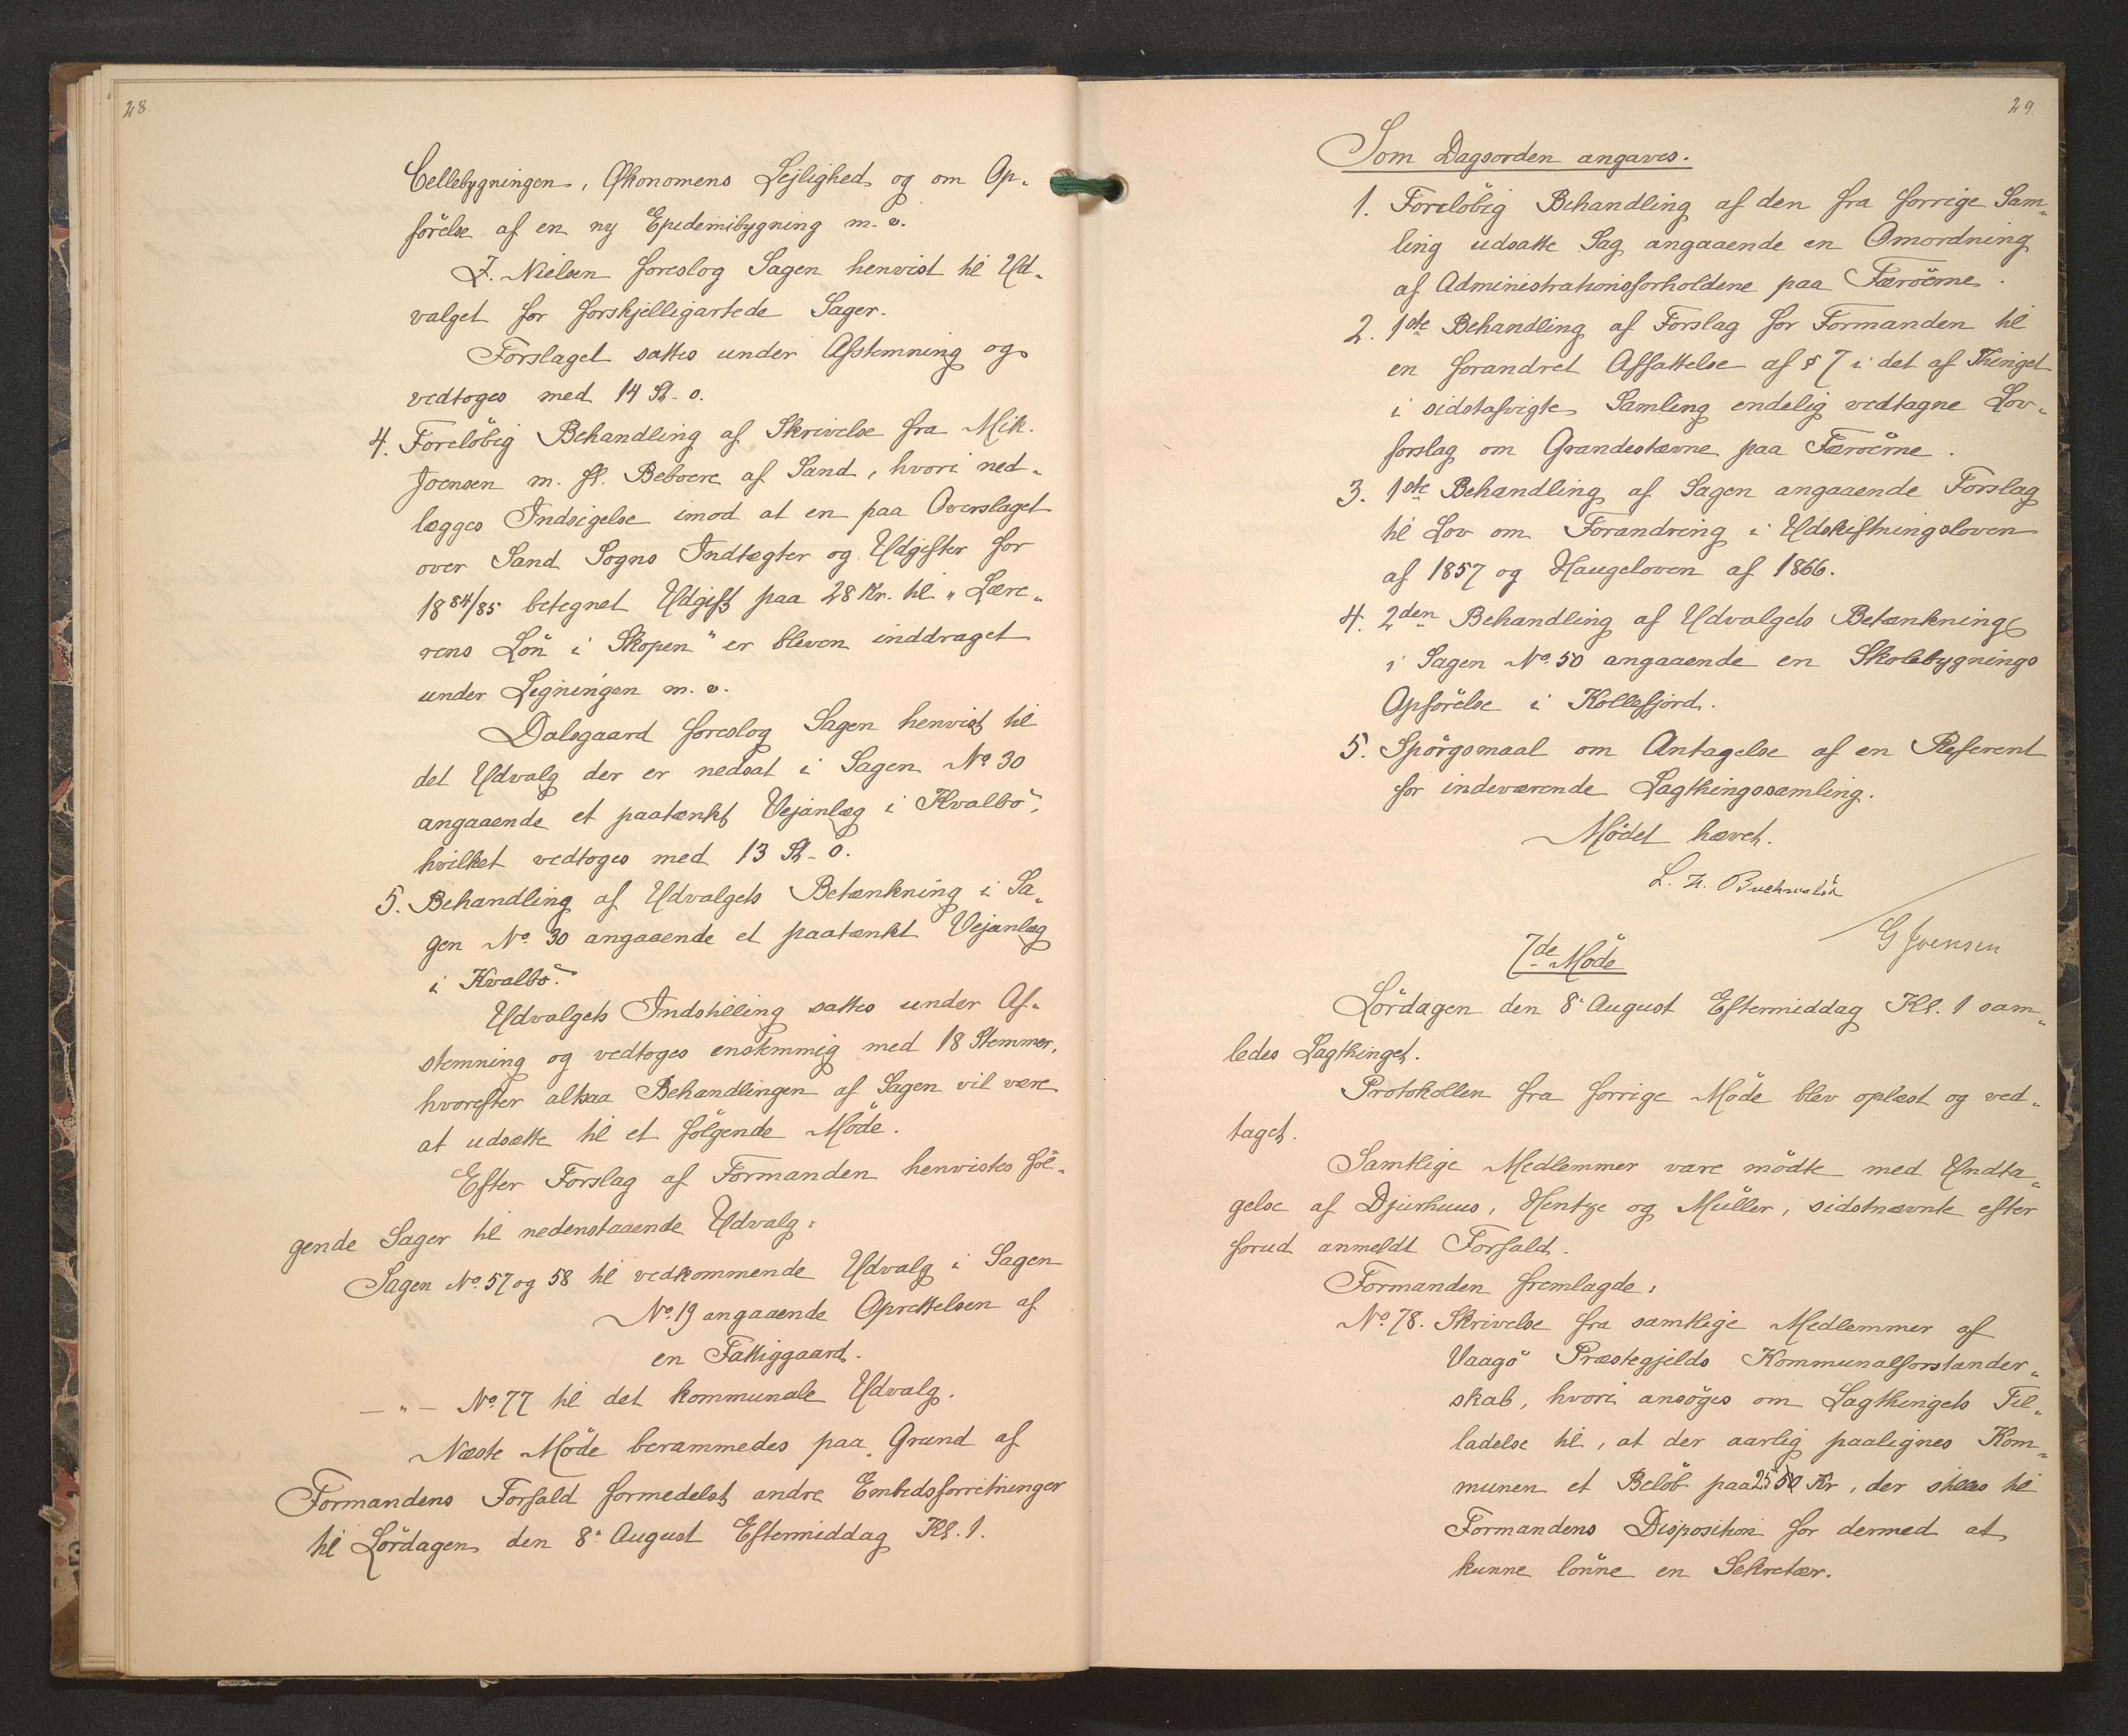 28.
Cellebygningen, Økonomens Lejlighed og om Op-
förelse af en ny Epidemibygning m. v.
J. Nielsen foreslog Sagen henvist til Ud-
valget for forskjelligartede Sager.
Forslaget sattes under Afstemning og
vedtoges med 14 St. - 0.
4. Forelöbig Behandling af Skrivelse fra Mik.
Joensen m. fl. Beboere af Sand, hvori ned-
lægges Indsigelse imod at en paa Overslaget
over Sand Sogns Indtægter og Udgifter for
1884/85 betegnet Udgift paa 28 Kr. til "Lære-
rens Lön i Skopen" er bleven inddraget
under Ligningen m. v.
Dalsgaard foreslog Sagen henvist til
det Udvalg der er nedsat i Sagen No 30
angaaende et paatænkt Vejanlæg i Kvalbö,
hvilket vedtoges med 13 St. - 0.
5. Behandling af Udvalgets Betænkning i Sa-
gen No. 30 angaaende et paatænkt Vejanlæg
i Kvalbö.
Udvalgets Indstilling sattes under Af-
stemning og vedtoges enstemmig med 18 Stemmer,
hvorefter altsaa Behandlingen af Sagen vil være
at udsætte til et fölgende Möde.
Efter Forslag af Formanden henvistes föl-
gende Sager til nedenstaaende Udvalg:
Sagen No. 57 og 58 til vedkommende Udvalg i Sagen
No. 19 angaaende Oprettelsen af
en Fattiggaard.
— " — No. 77 til det kommunale Udvalg.
Næste Möde berammedes paa Grund af
Formandens Forfald formedelst andre Embedsforretninger
til Lördagen den 8. August Eftermiddag Kl. 1.
29.
Som Dagsorden angaves.
1. Forelöbig Behandling af den fra forrige Sam-
ling udsatte Sag angaaende en Omordning
af Administrationsforholdene paa Færöerne.
2. 1ste Behandling af Forslag for Formanden til
en forandret Affattelse af § 7 i det af Thinget
i sidstafvigte Samling endelig vedtagne Lov-
forslag om Grandestævne paa Færöerne.
3. 1ste Behandling af Sagen angaaende Forslag
til Lov om Forandring i Udskiftningsloven
af 1857 og Haugeloven af 1866.
4. 2den Behandling af Udvalgets Betænkning
i Sagen No. 50 angaaende en Skolebygnings
Opförelse i Kollefjord.
5. Spörgsmaal om Antagelse af en Referent
for indeværende Lagthingssamling.
Mödet hævet.
L. H. Buchwaldt
G Joensen
7de Möde
Lördagen den 8. August Eftermiddag Kl. 1 sam-
ledes Lagthinget.
Protokollen fra forrige Möde blev oplæst og ved-
taget.
Samtlige Medlemmer vare mödte med Undta-
gelse af Djurhuus, Hentze og Müller, sidstnævnte efter
forud anmeldt Forfald.
Formanden fremlagde:
No. 78. Skrivelse fra samtlige Medlemmer af
Vaagö Præstegjelds Kommunalforstander-
skab, hvori ansöges om Lagthingets Til-
ladelse til, at der aarlig paalignes Kom-
munen et Belöb paa 25 Kr, der stilles til
Formandens Disposition for dermed at
kunne lönne en Sekretær.